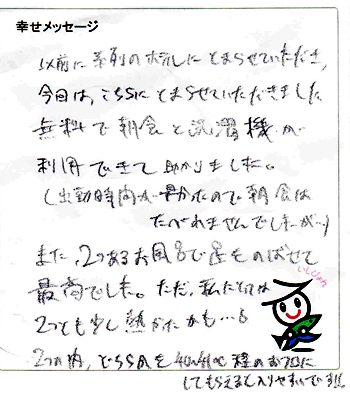 幸せメッセージ
以前に系列のホテルにとまらせていただき、
今回は、こちらにとまらせていただきました
無料で朝食と洗濯機が
利用できて助かりました。
(出勤時間が早かったので朝食は
たべれませんでしたが…)
また、2つあるお風呂で足ものばせて
最高でした。ただ、私にとっては
2つとも少し熱かったかも…
2つの内、どちらかを 程のお風呂に
してもらえると入りやすいです